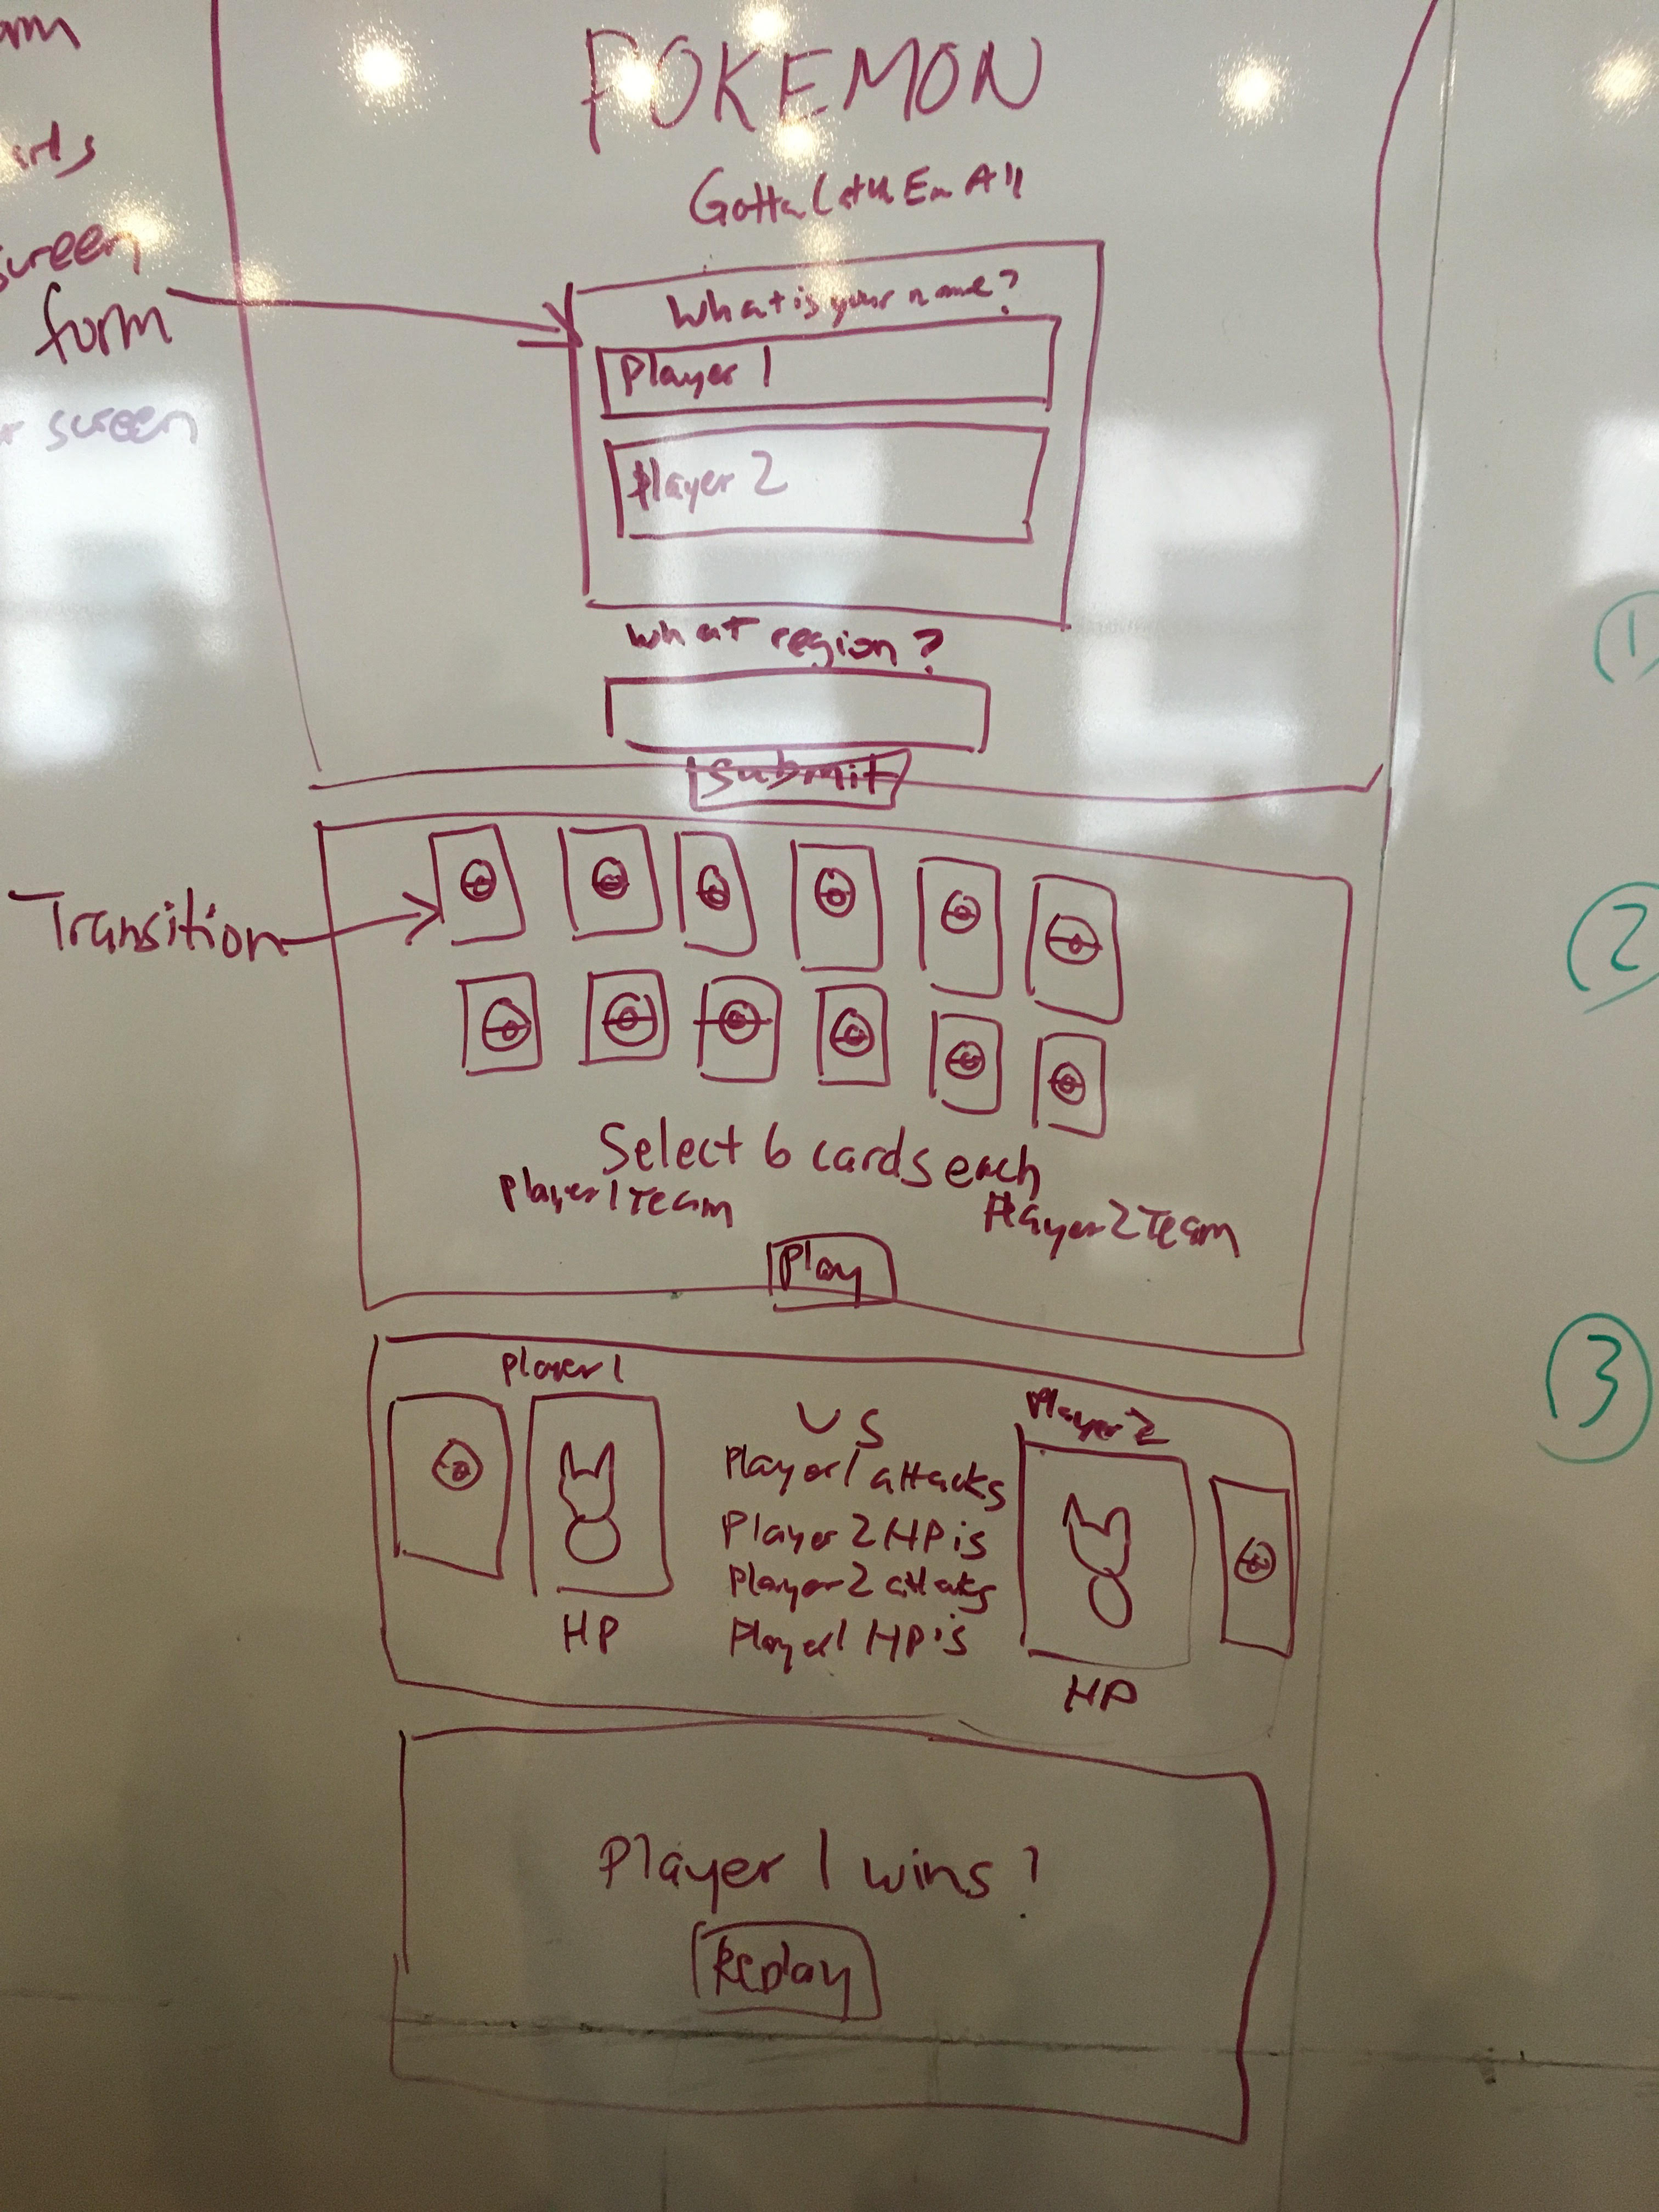 POKEMON
Gotta Catch Em All
What is your name?
Player 1
Player 2
What region?
Submit
screen
form
screen
Transition
Select 6 cards each
Player 1 Team
Player 2 Team
Play
Player 1
VS
Player 2
Player 1 attacks
Player 2 HP is
Player 2 attacks
Player 1 HP is
HP
HP
Player 1 wins!
Replay
1
2
3